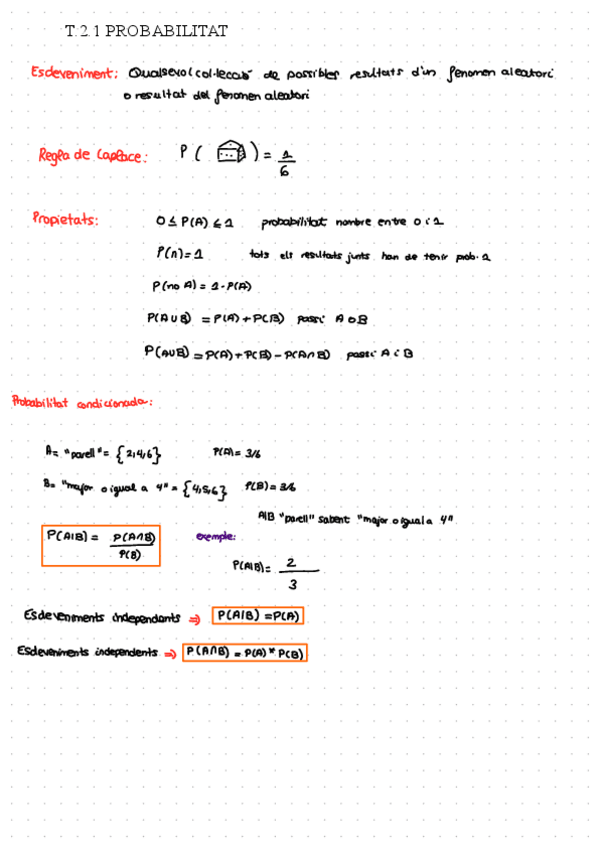 T.2.1 PROBABILITAT
Esdeveniment: Qualsevol col·lecció de possibles resultats d'un fenomen aleatori
o resultat del fenomen aleatori
Regla de Laplace: P( ) = 1/6
Propietats: 0 ≤ P(A) ≤ 1 probabilitat nombre entre 0 i 1
P(Ω) = 1 tots els resultats junts han de tenir prob. 1
P(no A) = 1 - P(A)
P(A∪B) = P(A) + P(B) passi A o B
P(A∪B) = P(A) + P(B) - P(A∩B) passi A i B
Probabilitat condicionada:
A = "parell" = {2,4,6} P(A) = 3/6
B = "major o igual a 4" = {4,5,6} P(B) = 3/6
A|B "parell" sabent "major o igual a 4"
P(A|B) = P(A∩B)/P(B) exemple:
P(A|B) = 2/3
Esdeveniments independents ⇒ P(A|B) = P(A)
Esdeveniments independents ⇒ P(A∩B) = P(A) * P(B)